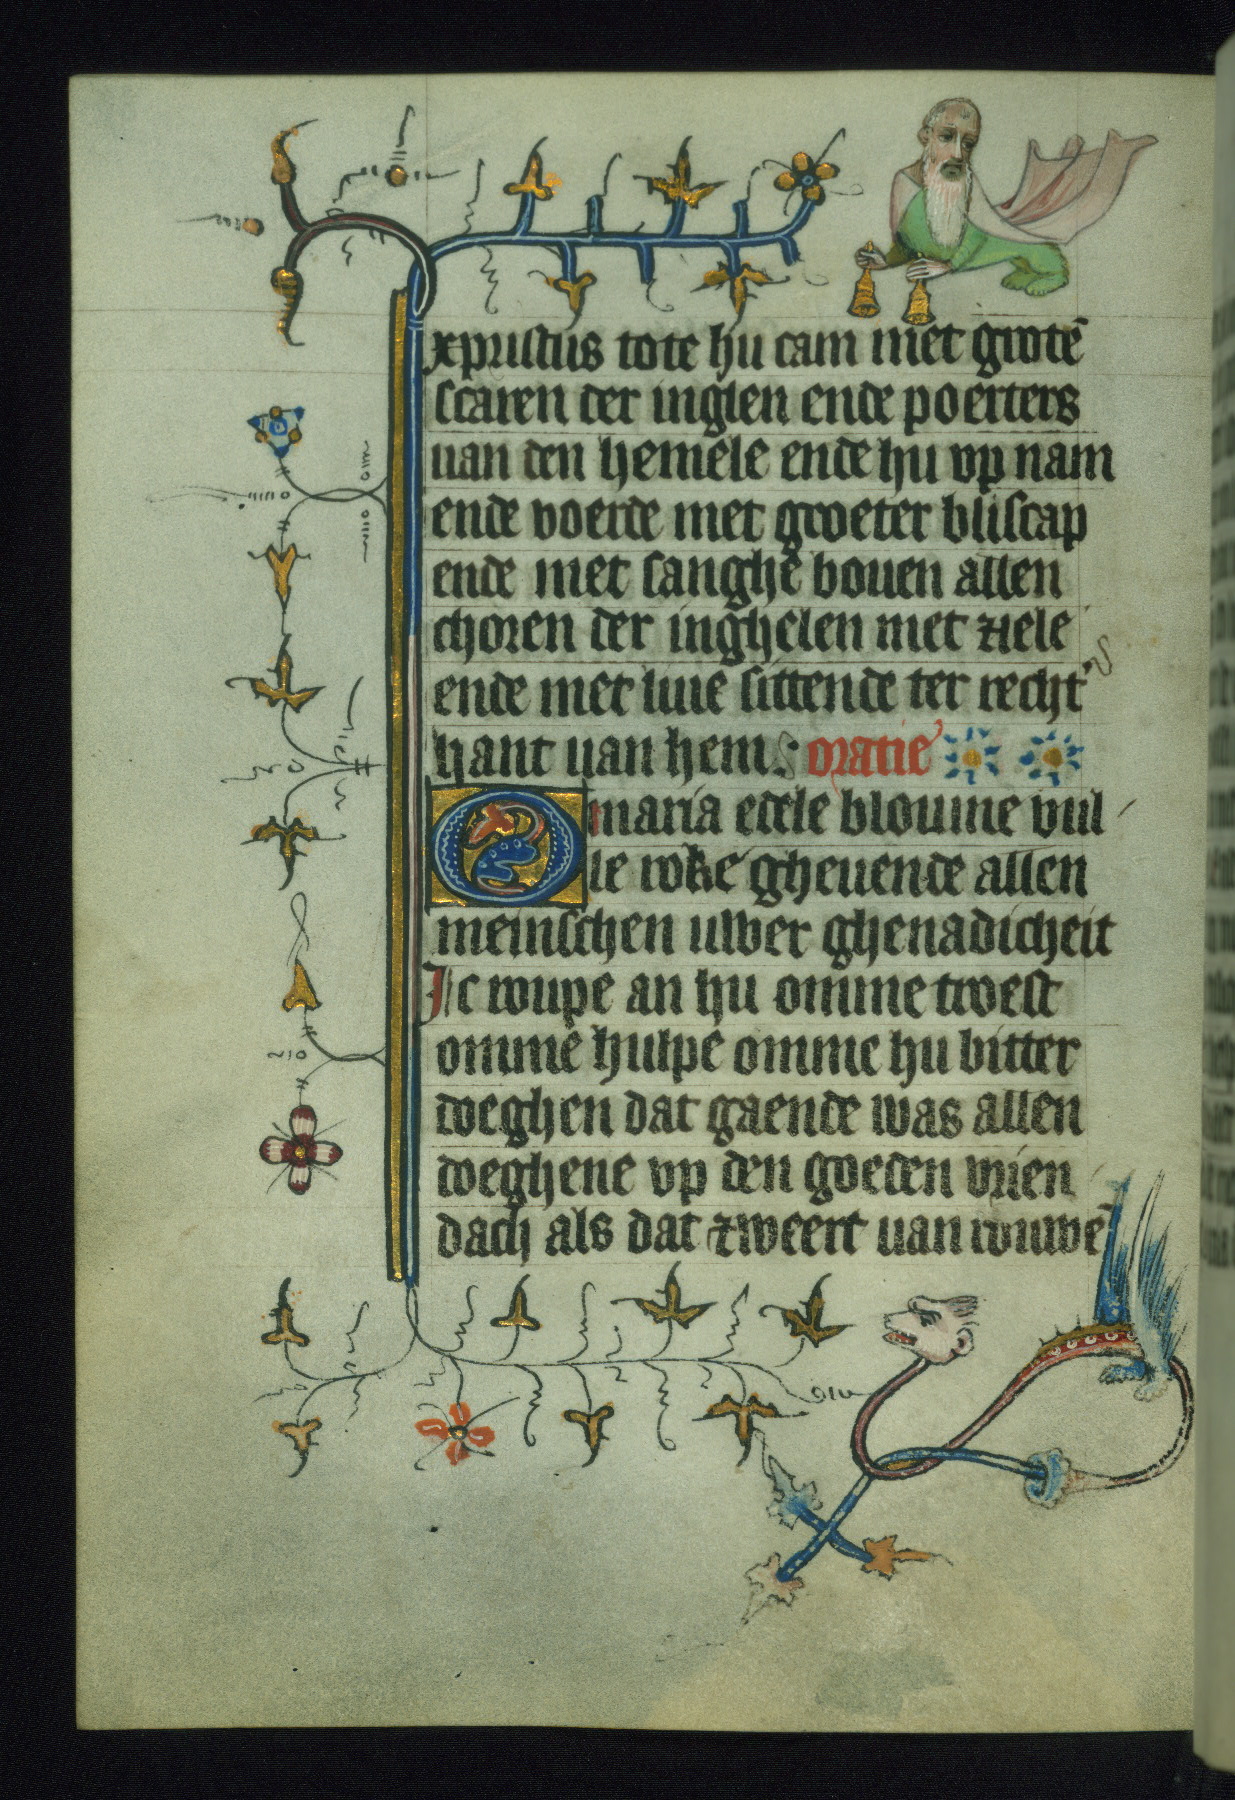 xpristus tote hu cam met grotē
scaren der inglen ende poerters
uan den hemele ende hu vp nam
ende voerde met groeter bliscap
ende met sanghe bouen allen
choren der inghelen met ziele
ende met liue sittende ter recht'
hant uan hem: oratie
O maria edele bloume vul
le roke gheuende allen
meinschen uwer ghenadicheit
Ic roupe an hu omme troest
omme hulpe omme hu bitter
weghen dat gaende was allen
weghene vp den goeden vrien
dach als dat zweert uan rouwē